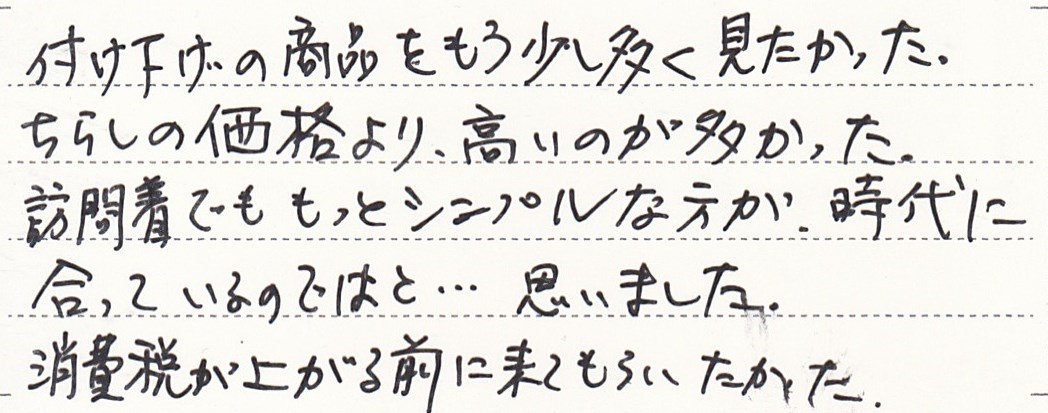 付け下げの商品をもう少し多く見たかった。
ちらしの価格より、高いのが多かった。
訪問着でももっとシンプルな方が、時代に
合っているのではと… 思いました。
消費税が上がる前に来てもらいたかった。